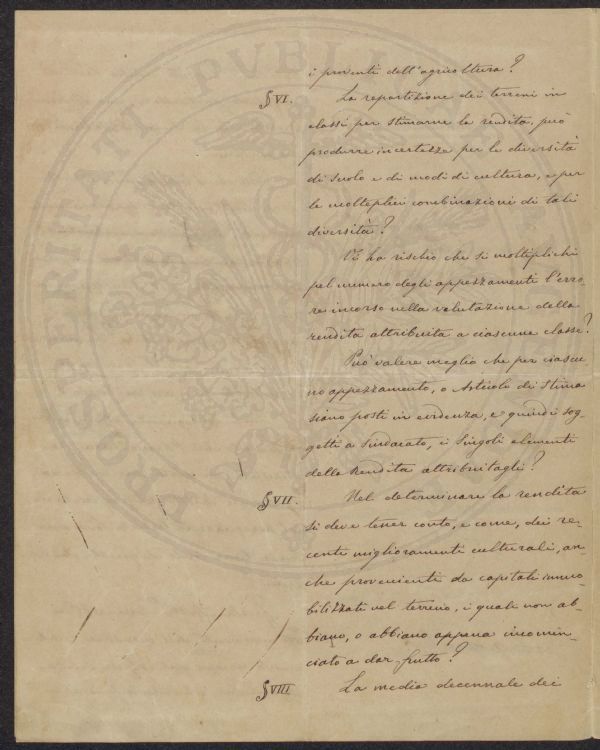 i proventi dell'agricoltura?
§ VI.
La repartizione dei terreni in
classi per stimarne la rendita, può
produrre incertezze per le diversità
di suolo e di modi di cultura, e per
le molteplici combinazioni di tali
diversità?
Vi ha rischio che si moltiplichi
pel numero degli appezzamenti l'erro-
re incorso nella valutazione della
rendita attribuita a ciascune classe?
Può valere meglio che per ciascu
no appezzamento, o Articolo di Stima
siano posti in evidenza, e quindi sog-
getti a Sindacato, i Singoli elementi
della Rendita attribuitagli?
§ VII.
Nel determinare la rendita
si deve tener conto, e come, dei re-
centi miglioramenti culturali, an-
che provenienti da capitali immo-
bilizzati nel terreno, i quali non ab-
biano, o abbiano appena incomin-
ciato a dar frutto?
§ VIII
La media decennale dei
PVBL
PROSPERITATI